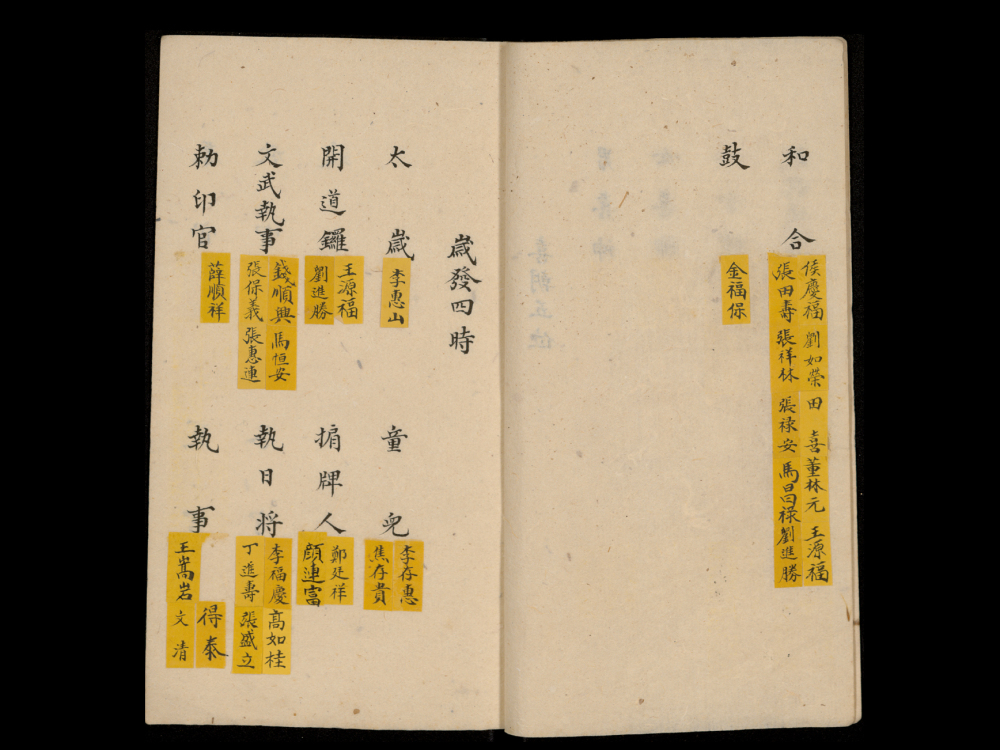 和合
侯慶福 劉如榮 田喜 董林元 王源福
張田壽 張祥林 張祿安 馬昌祿 劉進勝
鼓
金福保
歲發四時
太歲
李惠山
童兒
李存惠
焦存貴
開道鑼
王源福
劉進勝
掮牌人
鄭廷祥
顏連富
文武執事
錢順興 馬恒安
張保義 張惠連
執日将
李福慶 高如桂
丁進壽 張盛立
勅印官
薛順祥
執事
得泰
王嵩岩 文清